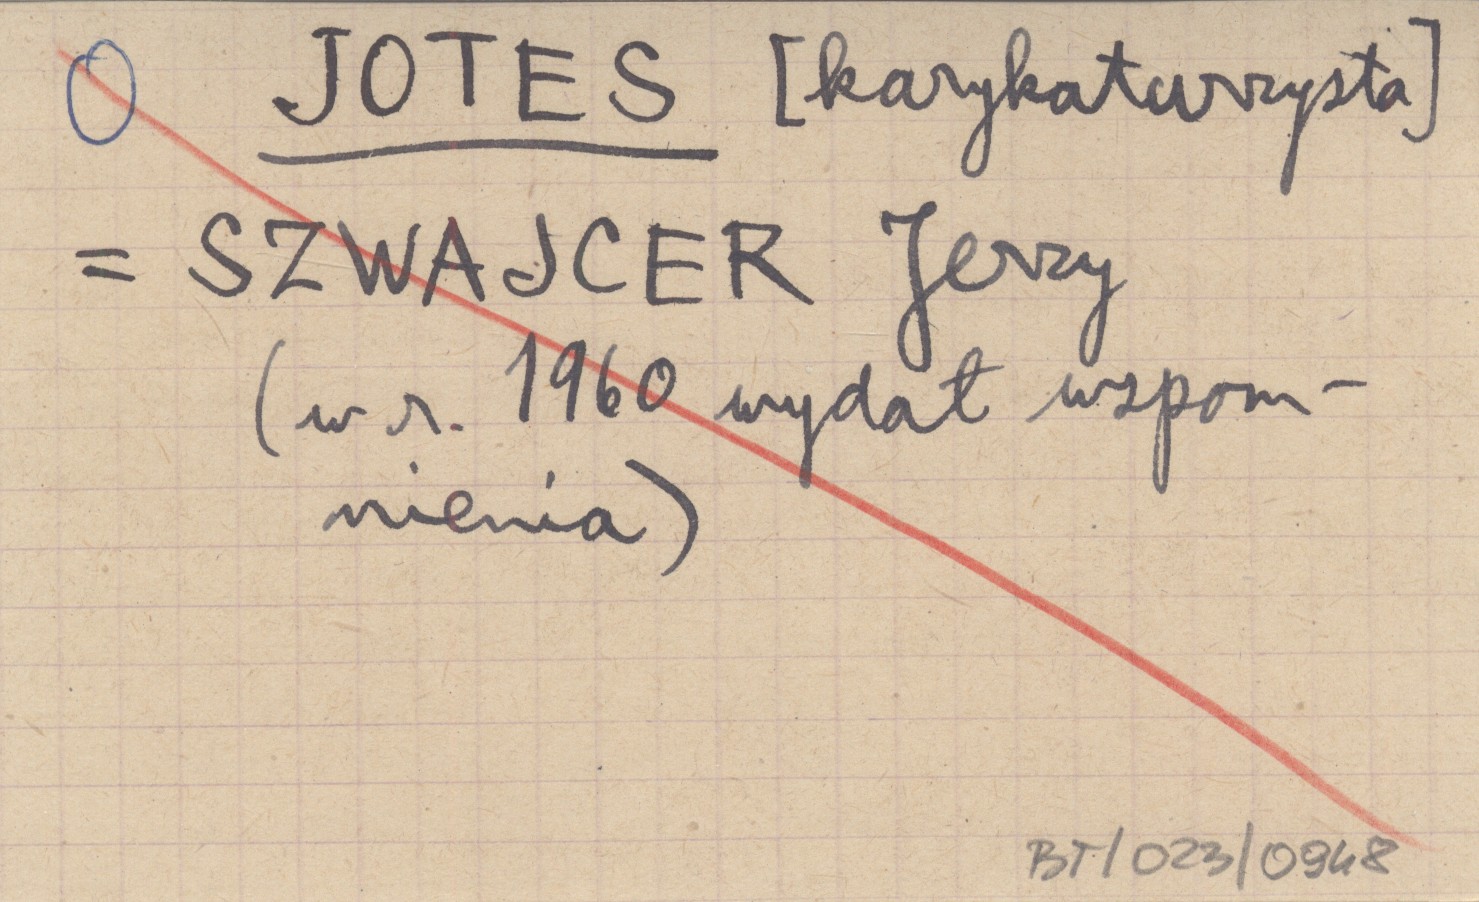 0 JOTES [karykaturzysta]
= SZWAJCER Jerzy
(w r. 1960 wydał wspom-
nienia)
BT/023/0948